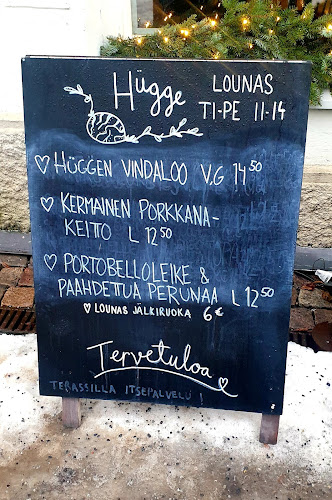 Hügge
LOUNAS
TI-PE 11-14
HÜGGEN VINDALOO V.G 14⁵⁰
KERMAINEN PORKKANA-
KEITO L 12⁵⁰
PORTOBELLOLEIKE &
PAAHDETUA PERUNAA L 12⁵⁰
LOUNAS JÄLKIRUOKA 6€
Tervetuloa
TERASSILLA ITSEPALVELU!